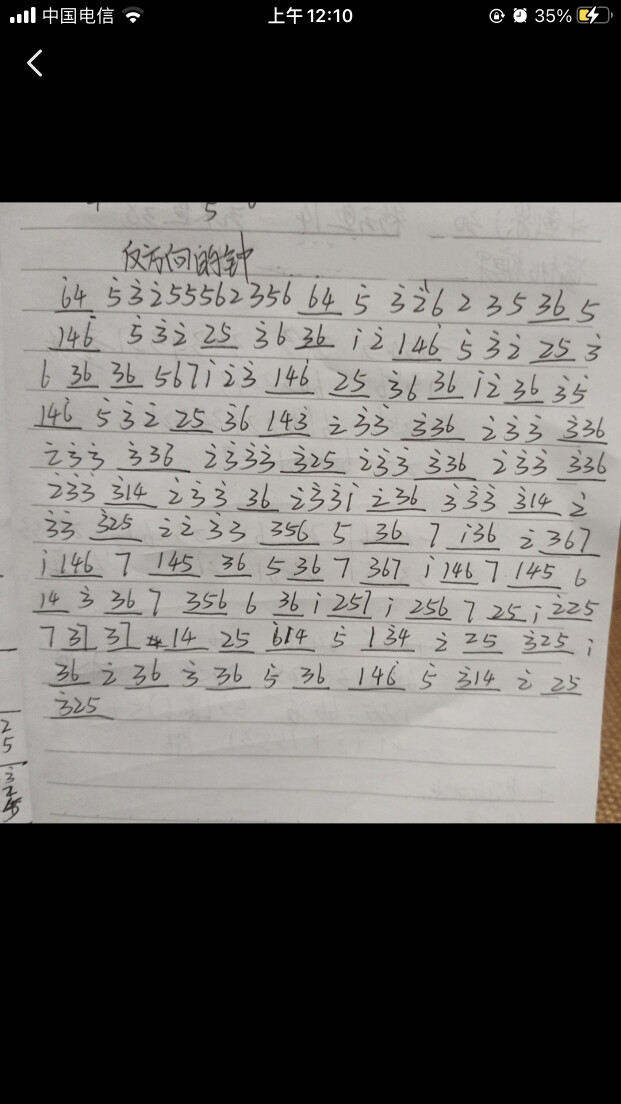 中国电信 上午 12:10 35%
反方向的钟
6̇4 5̇ 3̇ 2̇ 5 5 5 6 2 3 5 6 6̇4 5̇ 3̇ 2̇ 6 2 3 5 36 5
146̇ 5̇ 3̇ 2̇ 25 3̇ 6 36 1̇ 2̇ 146̇ 5̇ 3̇ 2̇ 25 3̇
6 36 36 5 6 7 1̇ 2̇ 3̇ 146̇ 25 3̇6 36 1̇ 2̇ 36 3̇ 5̇
146̇ 5̇ 3̇ 2̇ 25 3̇6 143̇ 2̇ 3̇ 3̇ 3̇36 2̇ 3̇ 3̇ 3̇36
2̇ 3̇ 3̇ 3̇36 2̇ 3̇ 3̇ 3̇ 3̇25 2̇ 3̇ 3̇ 3̇36 2̇ 3̇ 3̇ 3̇36
2̇ 3̇ 3̇ 3̇14 2̇ 3̇ 3̇ 36 2̇ 3̇ 3̇ 1̇ 2̇36 3̇ 3̇ 3̇ 3̇14 2̇
3̇ 3̇ 3̇25 2̇ 2̇ 3̇ 3̇ 356 5 36 7 1̇36 2̇ 367
1̇ 146 7 145 36 5 36 7 367 1̇ 146 7 145 6
14 3 36 7 356 6 36 1̇ 257 1̇ 256 7 25 1̇ 2̇25
7 37 37 14 25 6̇14 5̇ 13̇4 2̇ 25 3̇25 1̇
36 2̇ 36 3̇ 36 5̇ 36 146̇ 5̇ 3̇14 2̇ 25
3̇25